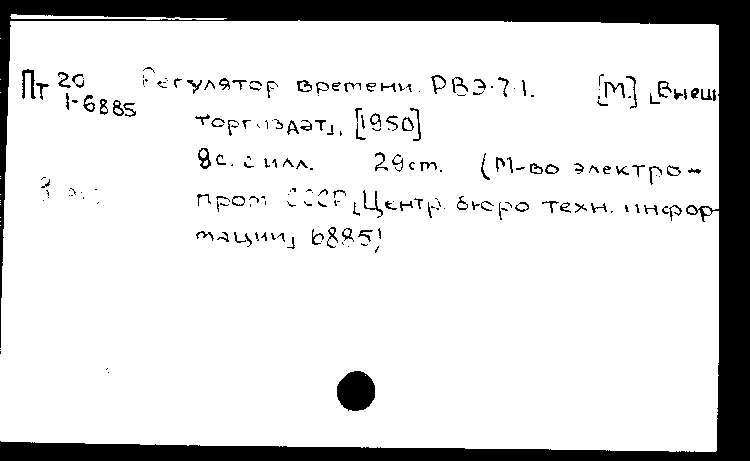 Пт 20 1-6885
Регулятор времени РВЭ-7-1. [М.] „Внеш-
торгиздат", [1950]
8с. с илл. 29cm. (М-во электро-
пром СССР „Центр. бюро техн. инфор-
мации" 6885)